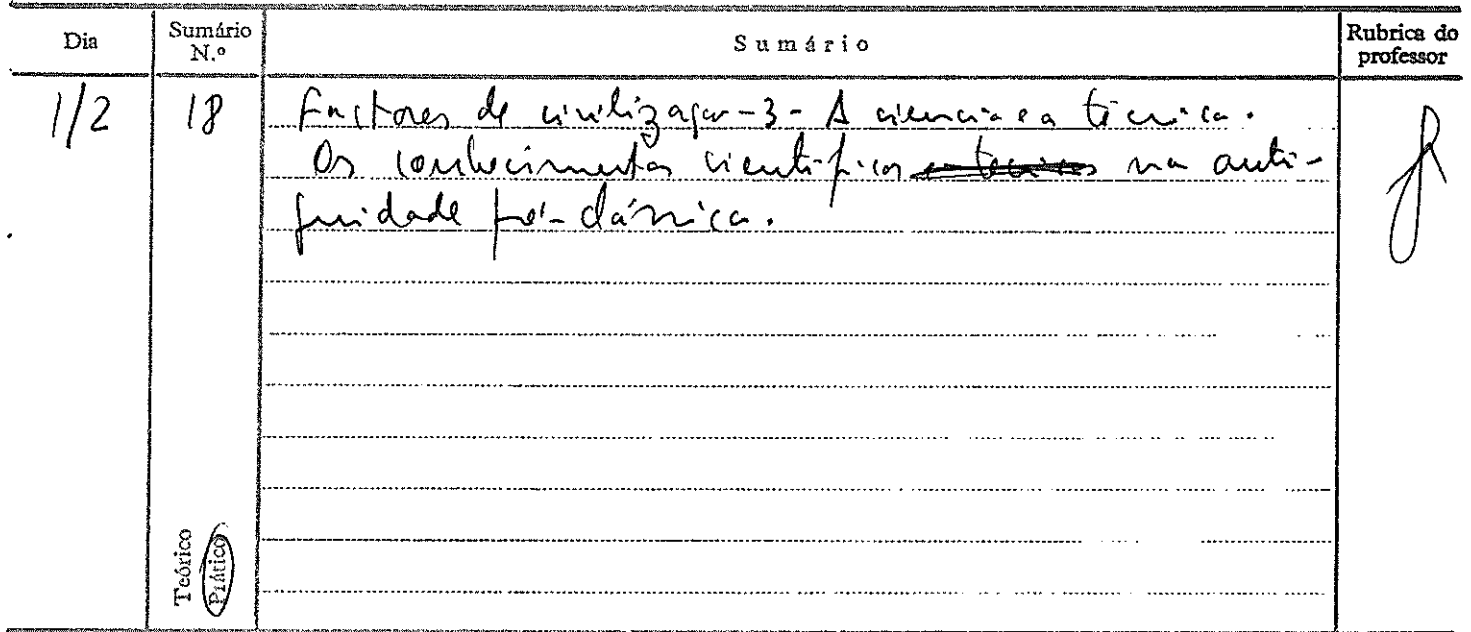 Dia
Sumário N.º
Sumário
Rubrica do professor
1/2
18
Factores de civilização - 3 - A ciencia e a técnica.
Os conhecimentos cientificos na anti-
guidade pré-clássica.
Teórico
Prático